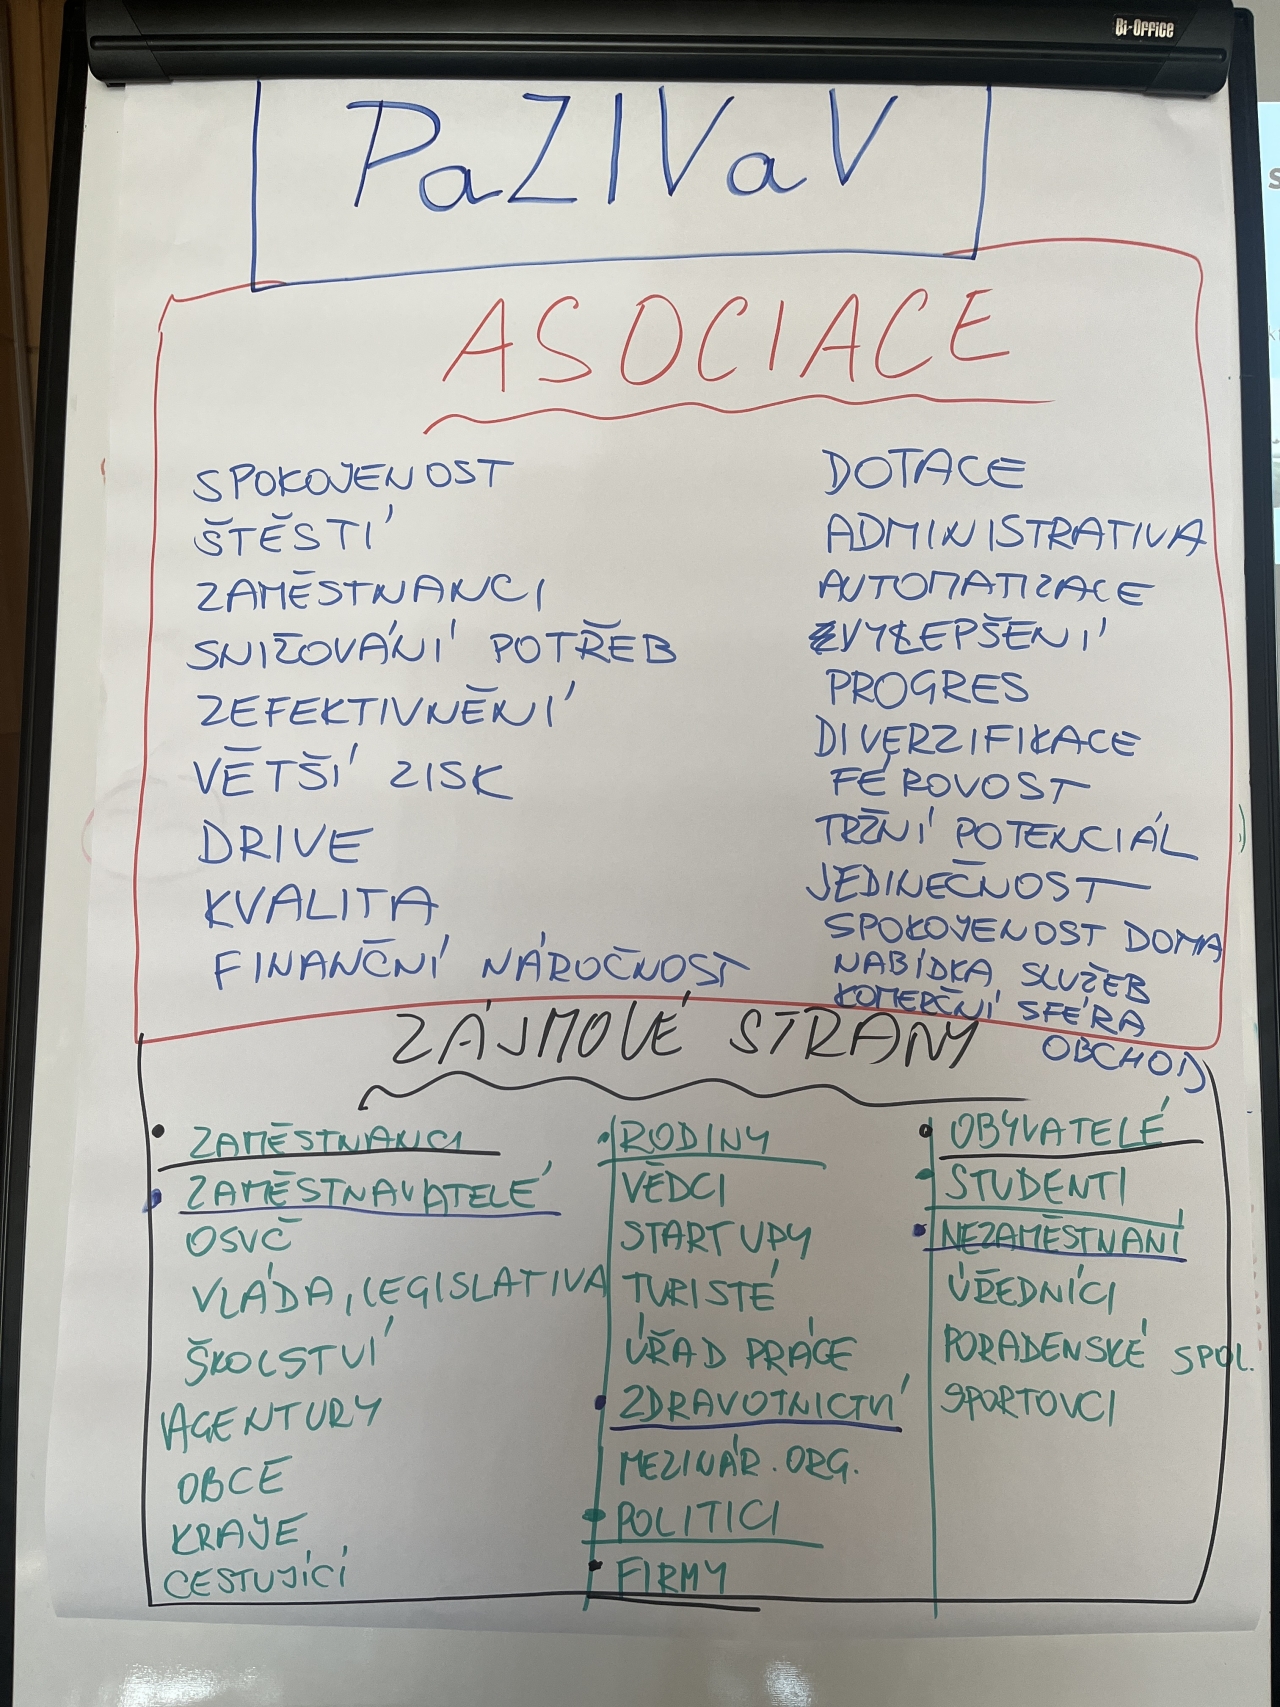 Bi-Office
PaZIVaV
ASOCIACE
SPOKOJENOST
ŠTĚSTÍ
ZAMĚSTNANCI
SNIŽOVÁNÍ POTŘEB
ZEFEKTIVNĚNÍ
VĚTŠÍ ZISK
DRIVE
KVALITA
FINANČNÍ NÁROČNOST
DOTACE
ADMINISTRATIVA
AUTOMATIZACE
VYLEPŠENÍ
PROGRES
DIVERZIFIKACE
FÉROVOST
TRŽNÍ POTENCIÁL
JEDINEČNOST
SPOKOJENOST DOMA
NABÍDKA SLUŽEB
KOMERČNÍ SFÉRA
OBCHOD
ZÁJMOVÉ STRANY
ZAMĚSTNANCI
ZAMĚSTNAVATELÉ
OSVČ
VLÁDA, LEGISLATIVA
ŠKOLSTVÍ
AGENTURY
OBCE
KRAJE
CESTUJÍCÍ
RODINY
VĚDCI
STARTUPY
TURISTÉ
ÚŘAD PRÁCE
ZDRAVOTNICTVÍ
MEZINÁR. ORG.
POLITICI
FIRMY
OBYVATELÉ
STUDENTI
NEZAMĚSTNANÍ
ÚŘEDNÍCI
PORADENSKÉ SPOL.
SPORTOVCI